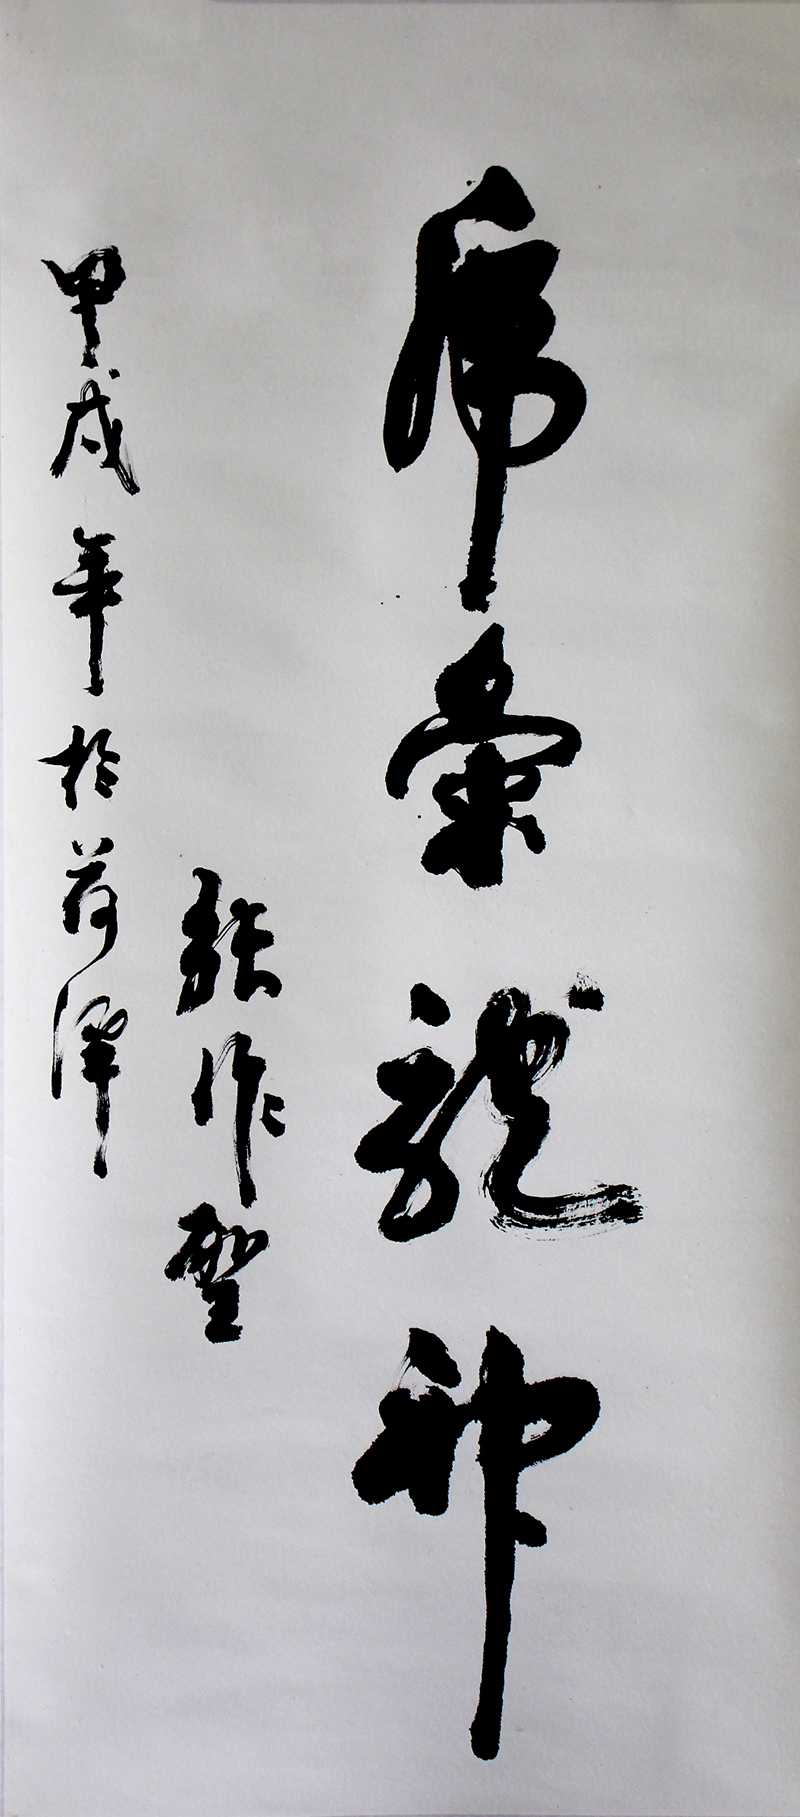 虎氣龍神
張作聖
甲戌年於荷澤